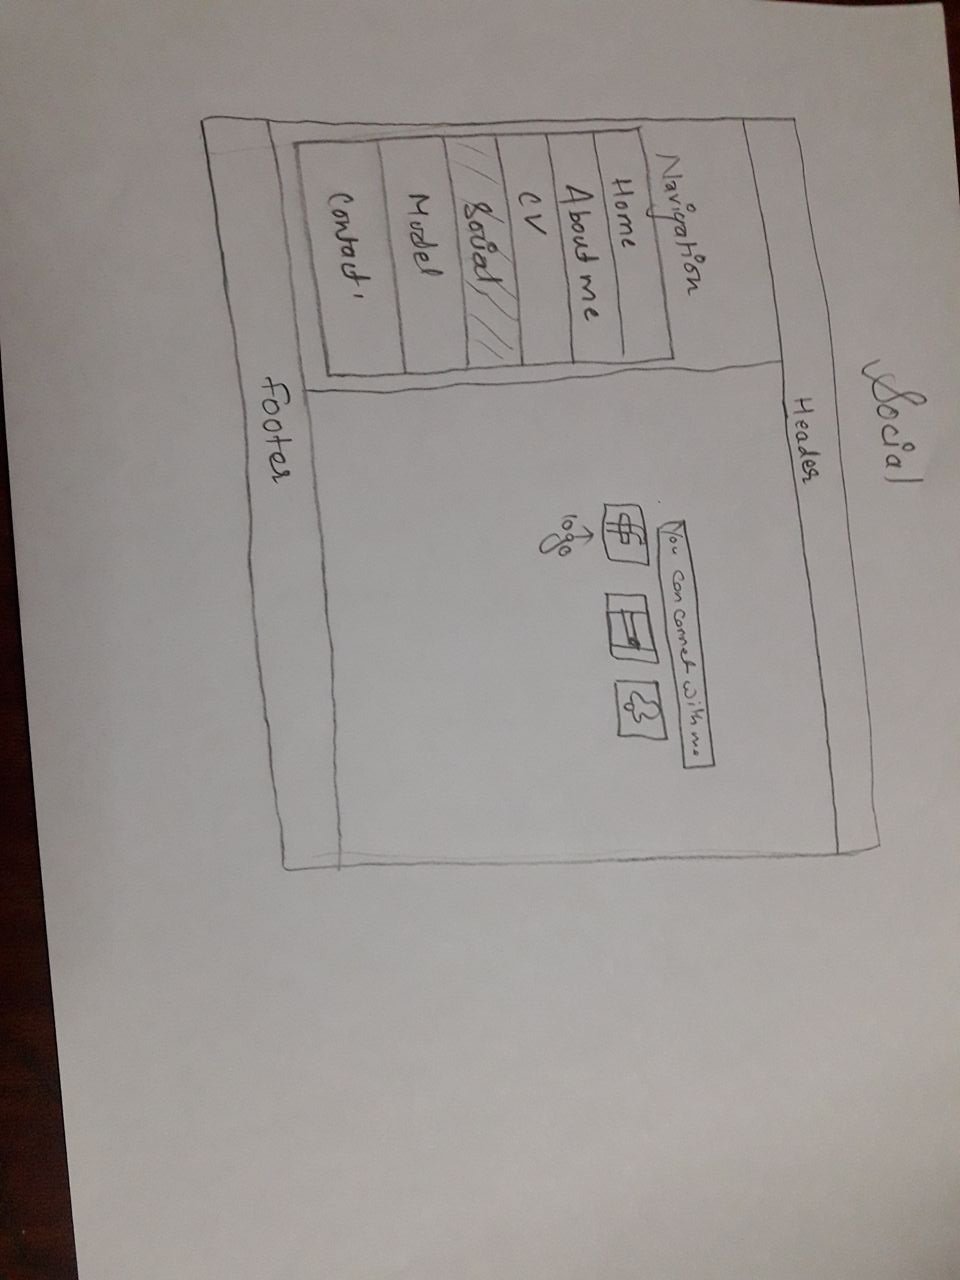 Social
Header
Navigation
Home
About me
CV
Social
Model
Contact
You can connet with me
logo
Footer